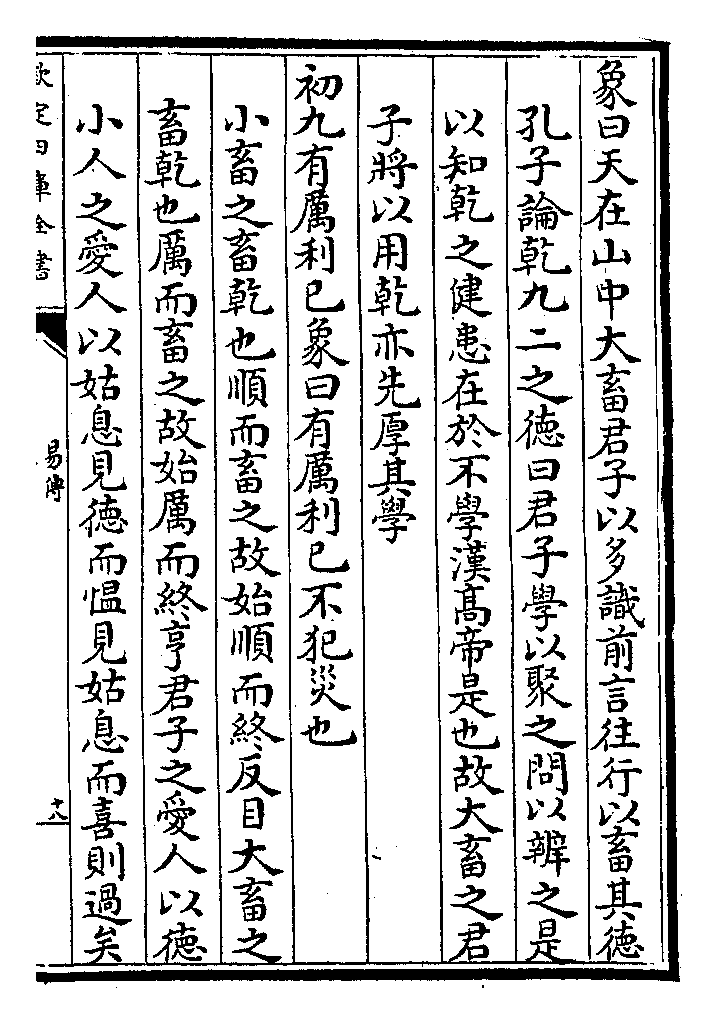 象曰天在山中大畜君子以多識前言往行以畜其德
孔子論乾九二之德曰君子學以聚之問以辨之是
以知乾之健患在於不學漢髙帝是也故大畜之君
子將以用乾亦先厚其學
初九有厲利已象曰有厲利已不犯災也
小畜之畜乾也順而畜之故始順而終反目大畜之
畜乾也厲而畜之故始厲而終亨君子之愛人以德
小人之愛人以姑息見德而愠見姑息而喜則過矣
欽定四庫全書
易傳
十八